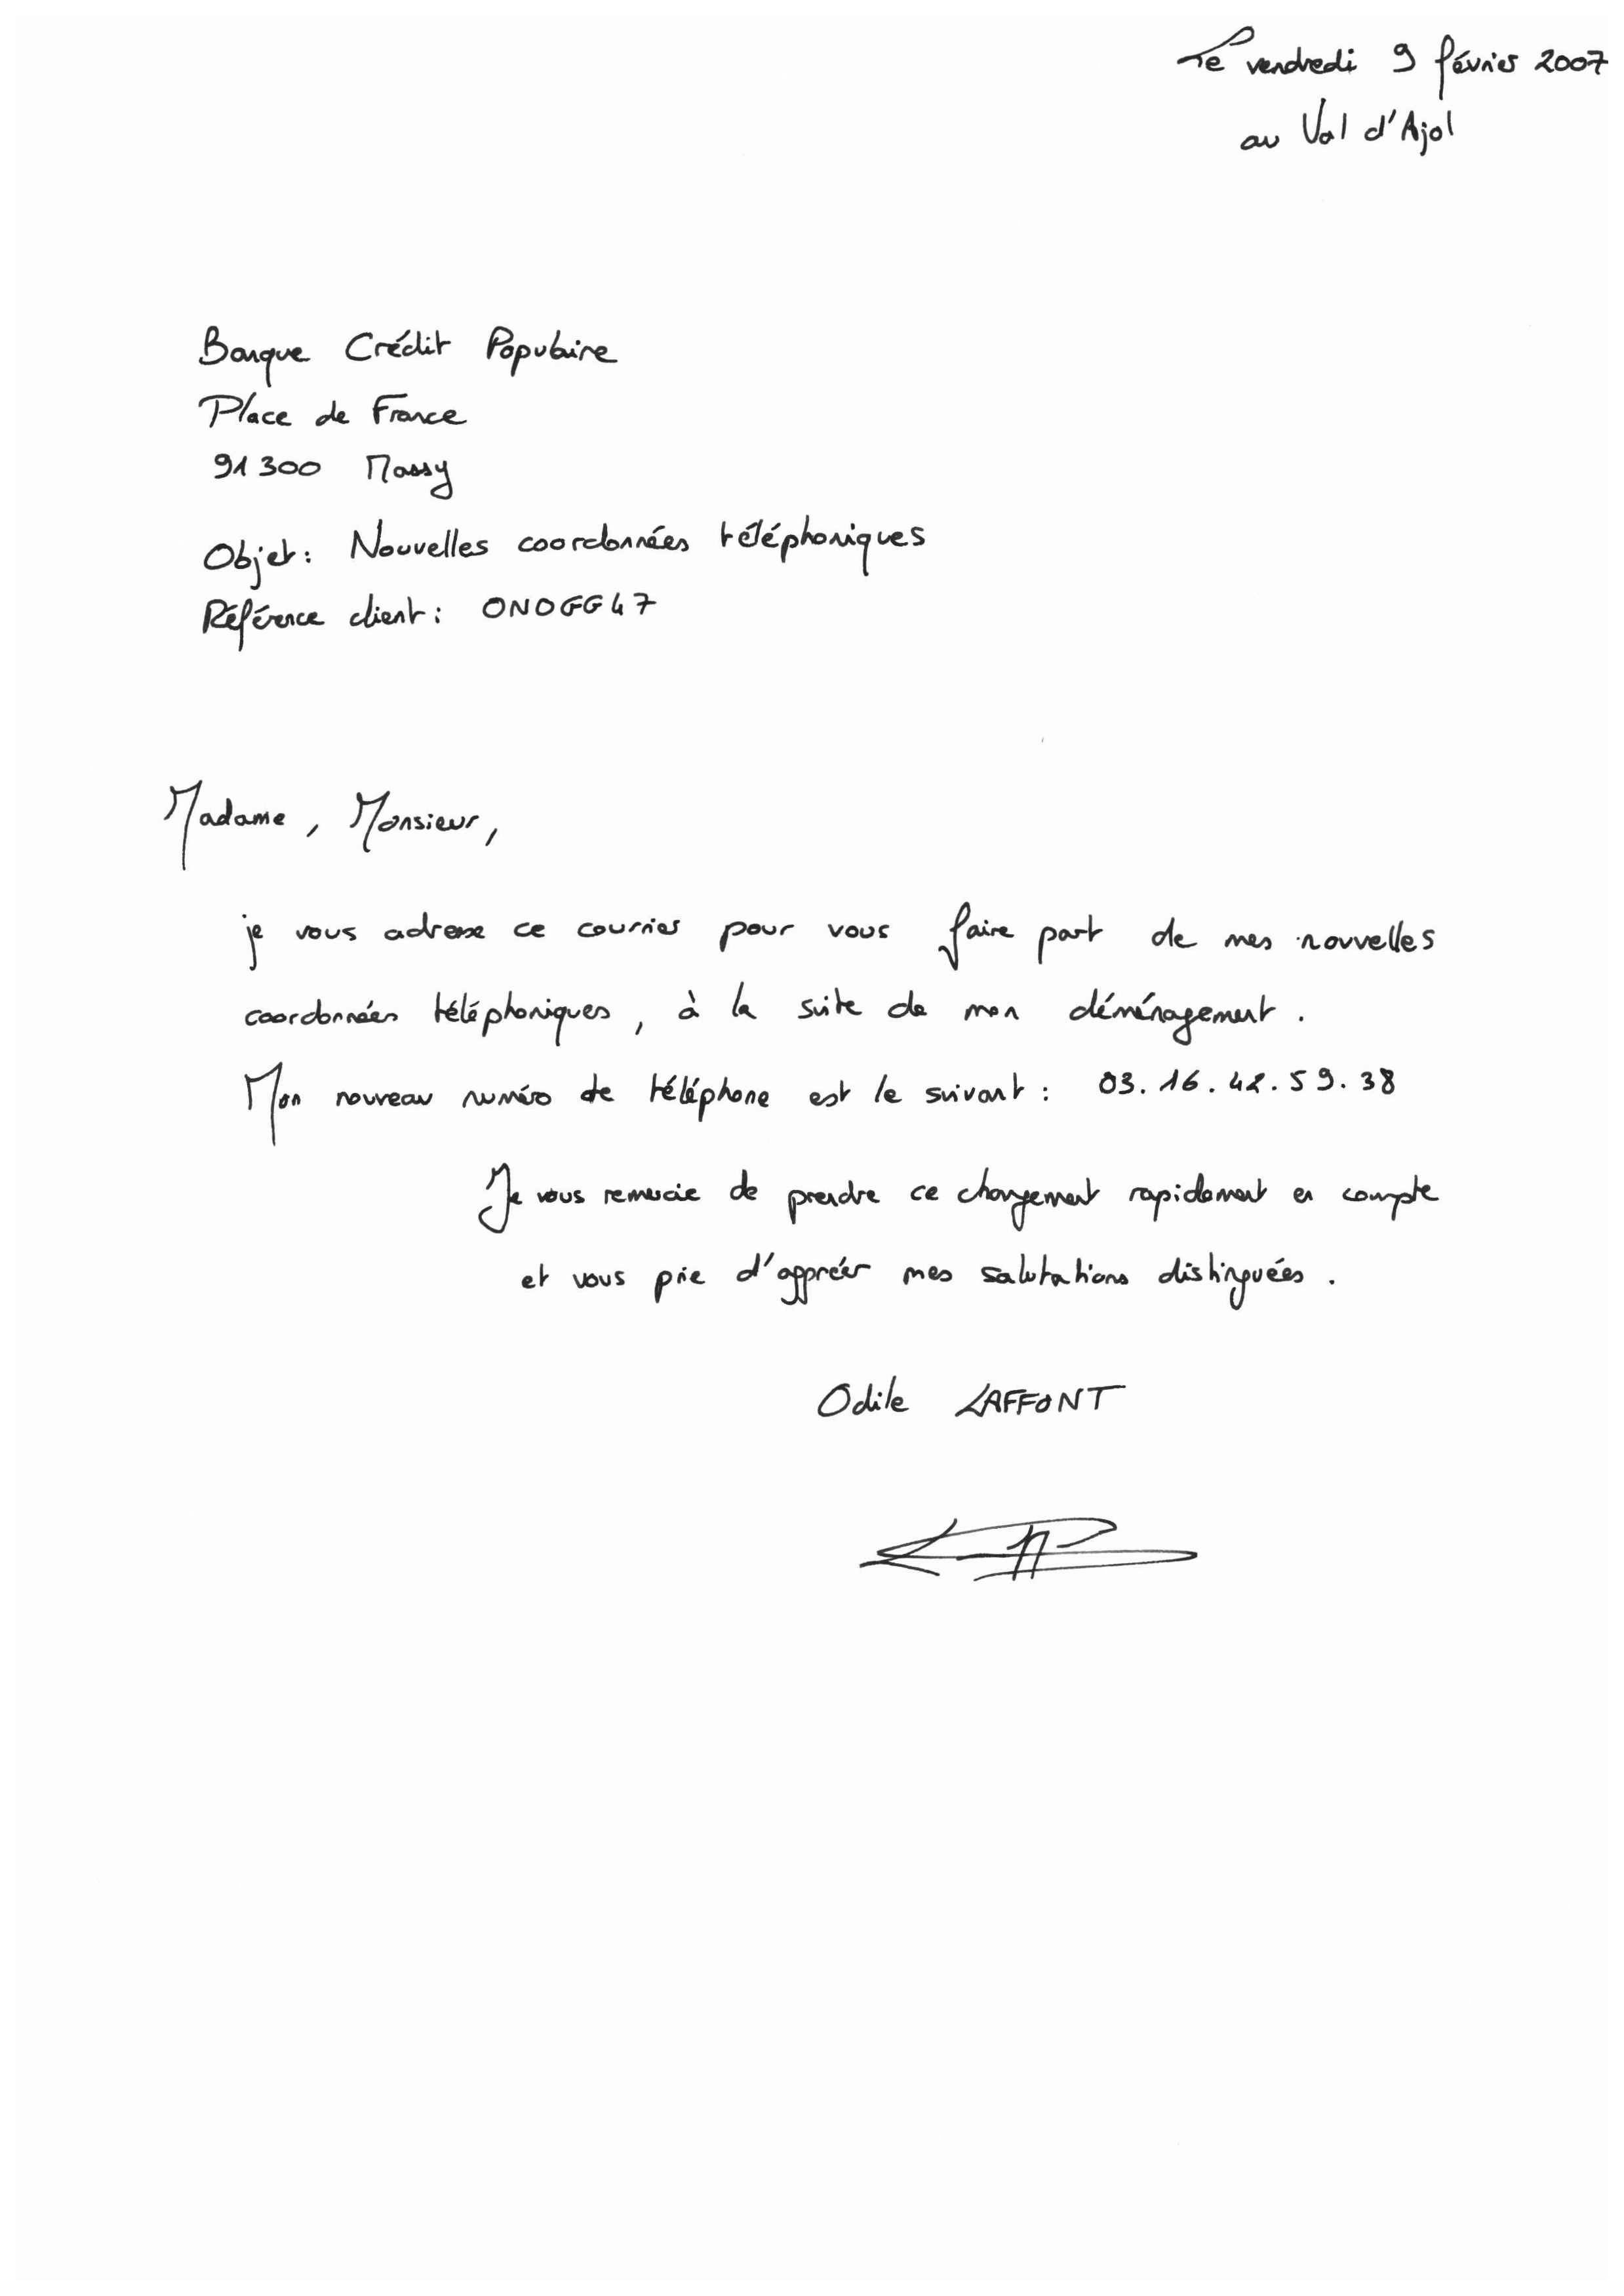 Le vendredi 9 février 2007
au Val d'Ajol
Banque Crédit Populaire
Place de France
91300 Massy
Objet : Nouvelles coordonnées téléphoniques
Référence client : ONOGG47
Madame, Monsieur,
je vous adresse ce courrier pour vous faire part de mes nouvelles
coordonnées téléphoniques, à la suite de mon déménagement.
Mon nouveau numéro de téléphone est le suivant : 03.16.42.59.38
Je vous remercie de prendre ce changement rapidement en compte
et vous prie d'aggréer mes salutations distinguées.
Odile LAFFONT